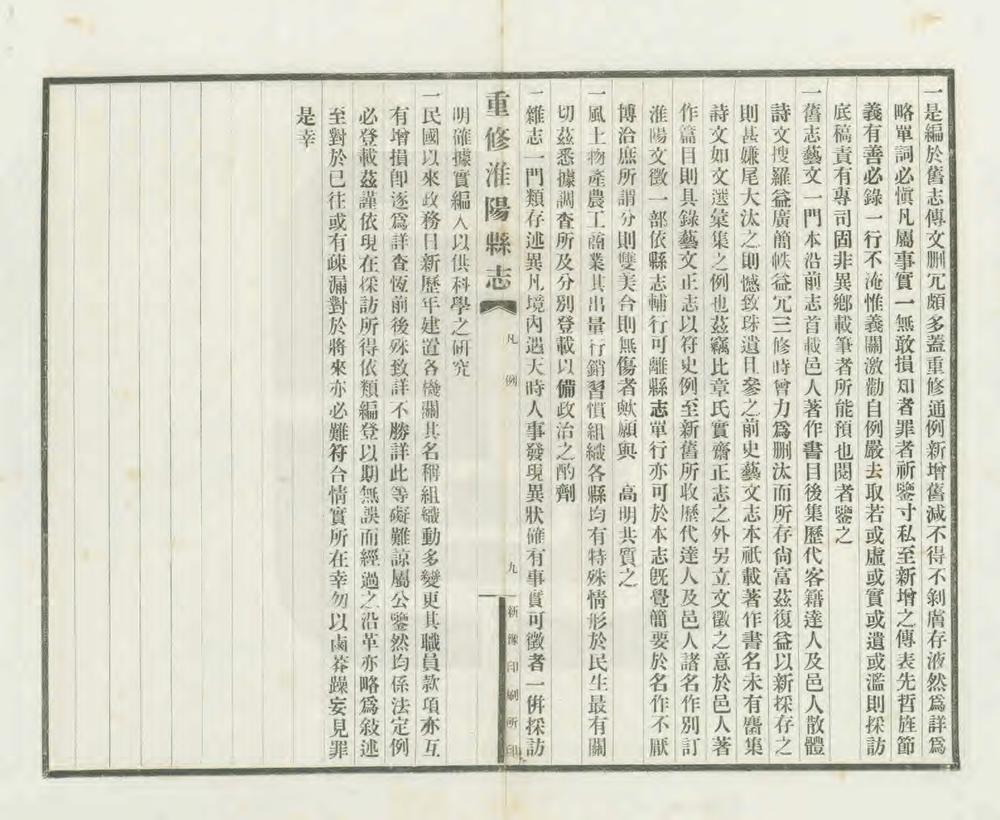 一是編於舊志傳文删冗頗多蓋重修通例新增舊減不得不剝膚存液然爲詳爲
略單詞必愼凡屬事實一無敢損知者罪者祈鑒寸私至新增之傳表先哲旌節
義有善必錄一行不淹惟義關激勸自例嚴去取若或虛或實或遺或濫則採訪
底稿責有專司固非異鄕載筆者所能預也閱者鑒之
一舊志藝文一門本沿前志首載邑人著作書目後集歷代客籍達人及邑人散體
詩文搜羅益廣簡帙益冗三修時曾力爲删汰而所存尙富茲復益以新採存之
則甚嫌尾大汰之則憾致珠遺且參之前史藝文志本祇載著作書名未有臚集
詩文如文選彙集之例也茲竊比章氏實齋正志之外另立文徵之意於邑人著
作篇目則具錄藝文正志以符史例至新舊所收歷代達人及邑人諸名作別訂
淮陽文徵一部依縣志輔行可離縣志單行亦可於本志旣覺簡要於名作不厭
博洽庶所謂分則雙美合則無傷者歟願與 高明共質之
一風土物產農工商業其出量行銷習慣組織各縣均有特殊情形於民生最有關
切茲悉據調查所及分別登載以備政治之酌劑
一雜志一門類存述異凡境內遇天時人事發現異狀確有事實可徵者一併採訪
重修淮陽縣志
凡例
九
新豫印刷所印
明確據實編入以供科學之研究
一民國以來政務日新歷年建置各機關其名稱組織動多變更其職員款項亦互
有增損卽逐爲詳查恆前後殊致詳不勝詳此等礙難諒屬公鑒然均係法定例
必登載茲謹依現在採訪所得依類編登以期無誤而經過之沿革亦略爲敍述
至對於已往或有疎漏對於將來亦必難符合情實所在幸勿以鹵莽躁妄見罪
是幸